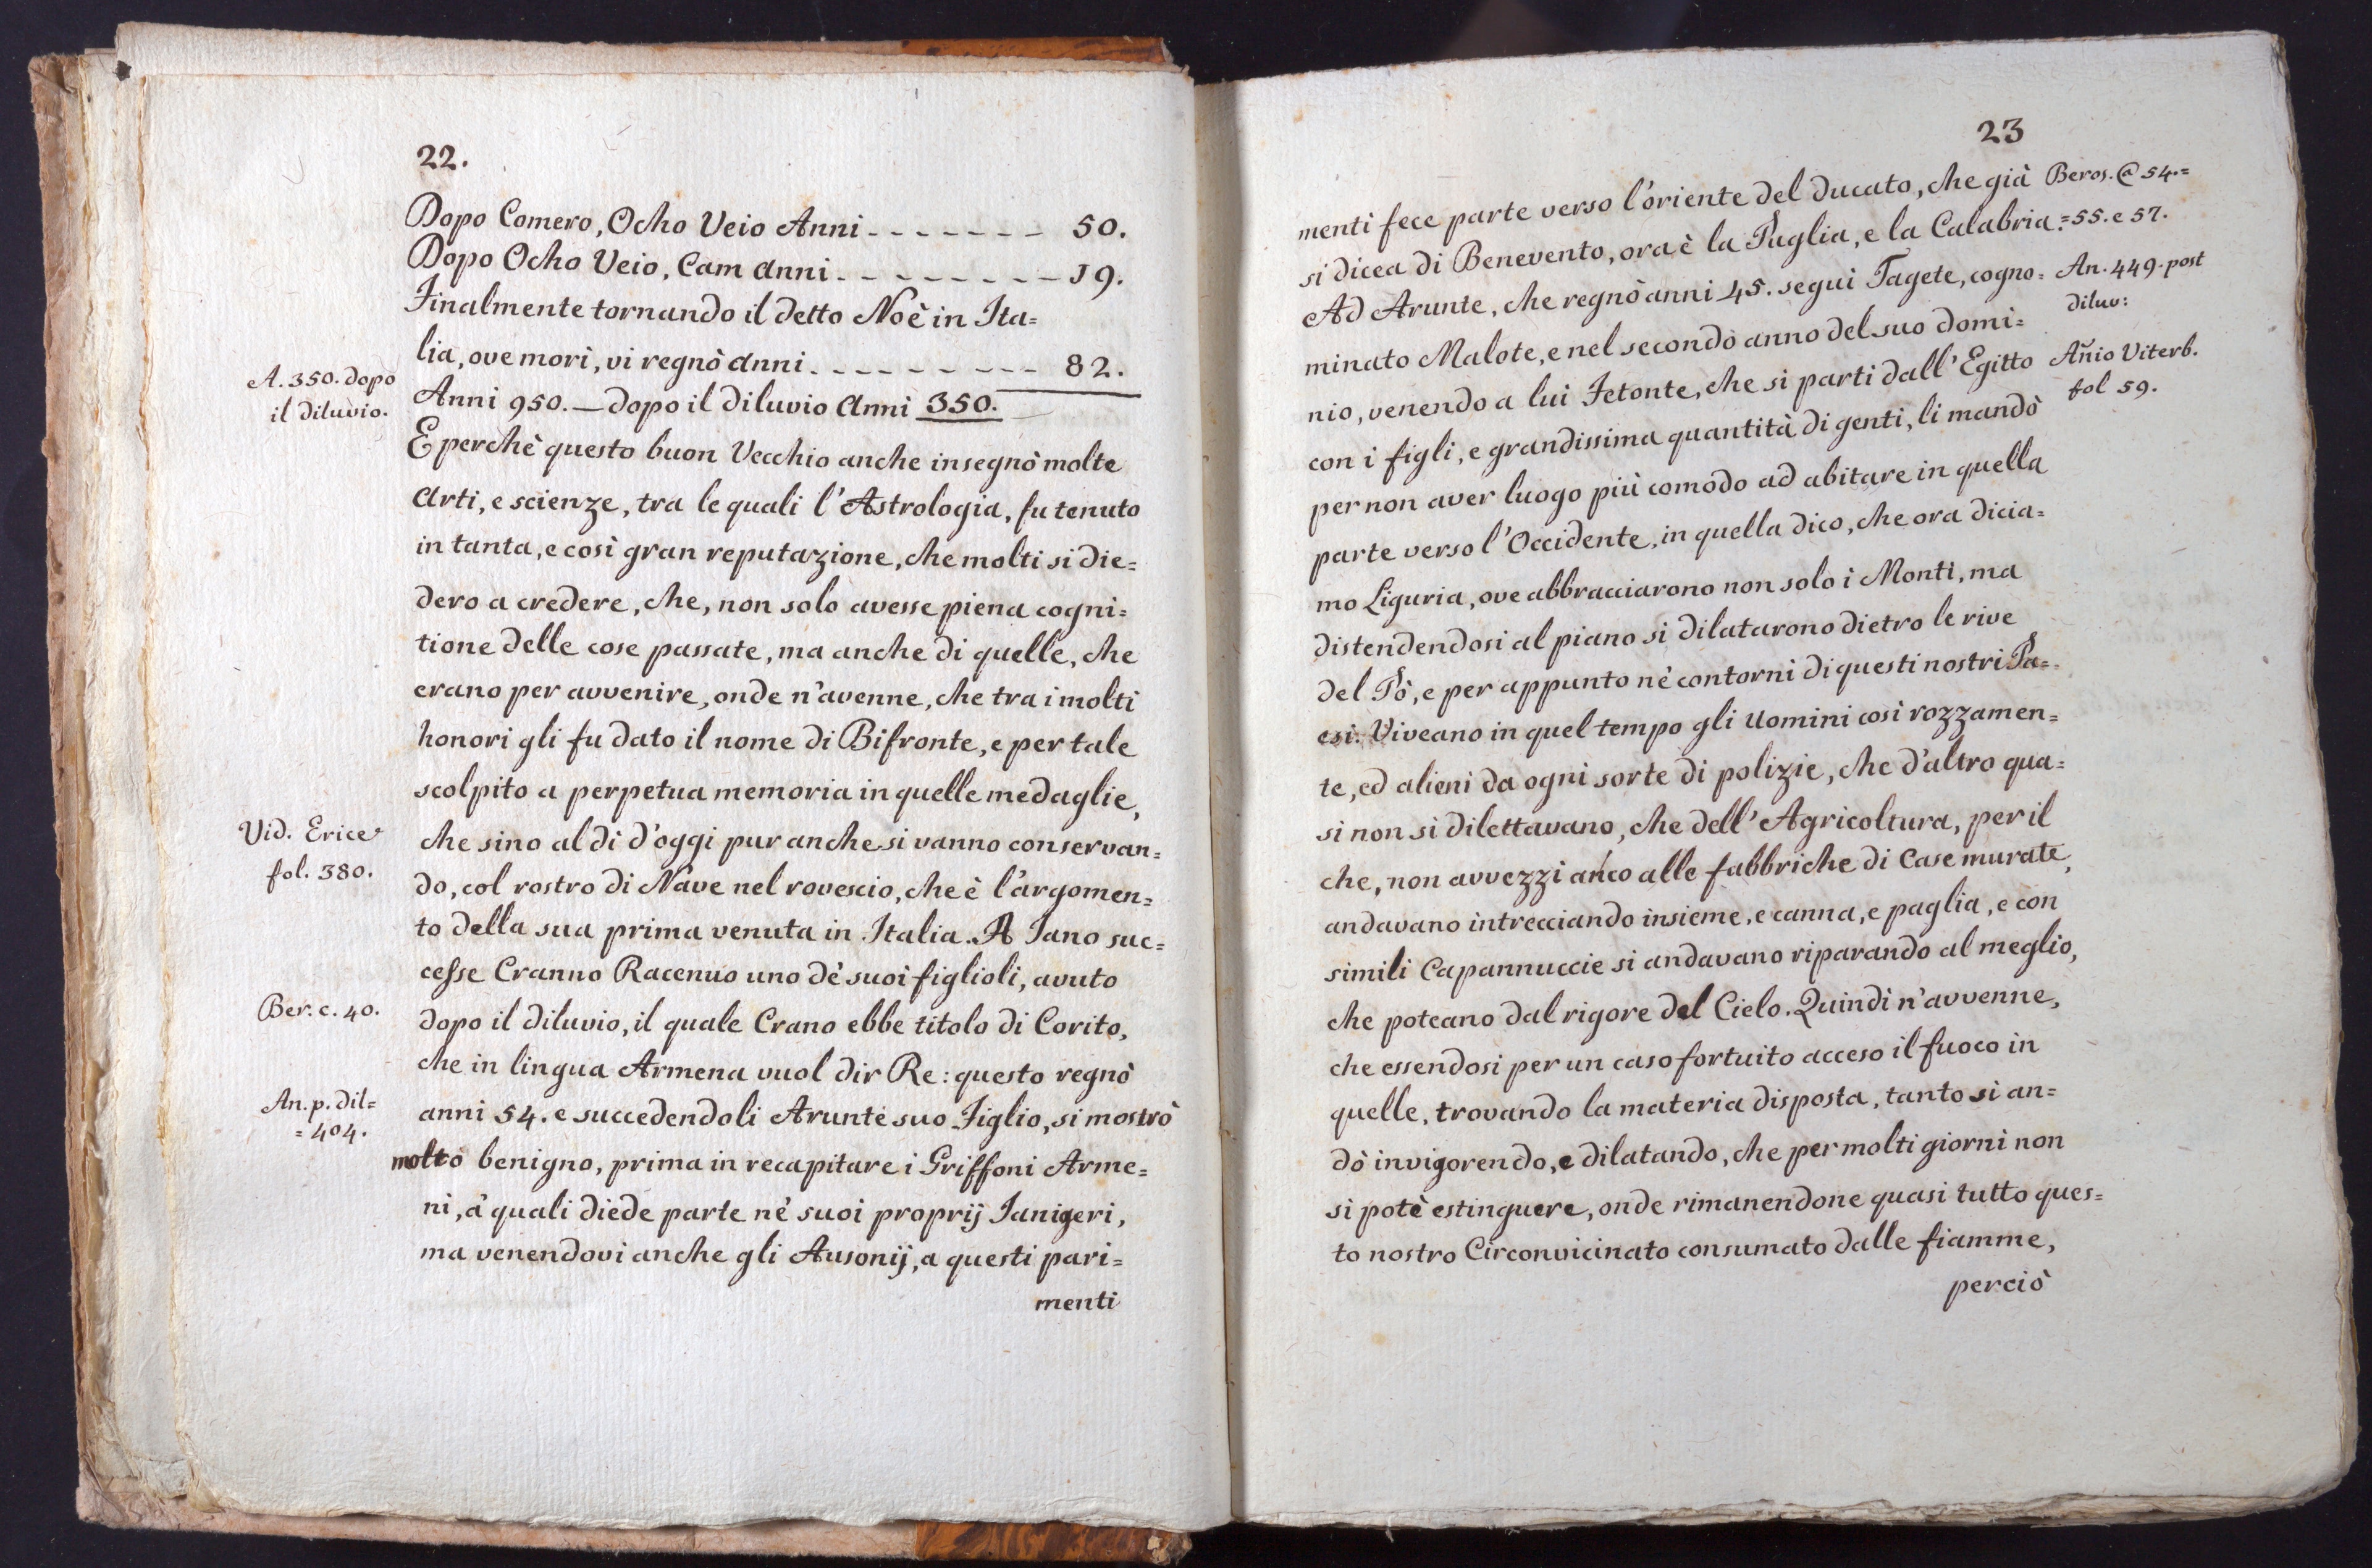 22.
Dopo Comero, Ocho Veio Anni - - - - - - - 50.
Dopo Ocho Veio, Cam Anni - - - - - - - - 19.
Finalmente tornando il detto Noè in Ita=
lia, ove morì, vi regnò Anni - - - - - - - - - 82.
A. 350. dopo
il diluvio.
Anni 950. — dopo il diluvio Anni 350.
E perchè questo buon Vecchio anche insegnò molte
Arti, e scienze, tra le quali l'Astrologia, fu tenuto
in tanta, e così gran reputazione, che molti si die=
dero a credere, che, non solo avesse piena cogni=
tione delle cose passate, ma anche di quelle, che
erano per avvenire, onde n'avenne, che tra i molti
honori gli fu dato il nome di Bifronte, e per tale
scolpito a perpetua memoria in quelle medaglie,
Vid. Erice
fol. 380.
che sino al dì d'oggi pur anche si vanno conservan=
do, col rostro di Nave nel rovescio, che è l'argomen=
to della sua prima venuta in Italia. A Iano suc=
cesse Cranno Racenuo uno dè suoi figlioli, avuto
Ber. c. 40.
dopo il diluvio, il quale Crano ebbe titolo di Corito,
che in lingua Armena vuol dir Re: questo regnò
An. p. dil=
=404.
anni 54. e succedendoli Arunte suo Figlio, si mostrò
molto benigno, prima in recapitare i Griffoni Arme=
ni, à quali diede parte nè suoi proprij Ianigeri,
ma venendovi anche gli Ausonij, a questi pari=
menti
23
menti fece parte verso l'oriente del ducato, che già
Beros. @ 54.=
si dicea di Benevento, ora è la Puglia, e la Calabria.
=55. e 57.
Ad Arunte, che regnò anni 45. seguì Tagete, cogno=
An. 449. post
diluv:
minato Malote, e nel secondo anno del suo domi=
nio, venendo a lui Fetonte, che si partì dall'Egitto
Anio Viterb.
fol 59.
con i figli, e grandissima quantità di genti, li mandò
per non aver luogo più comodo ad abitare in quella
parte verso l'Occidente, in quella dico, che ora dicia=
mo Liguria, ove abbracciarono non solo i Monti, ma
distendendosi al piano si dilatarono dietro le rive
del Pò, e per appunto nè contorni di questi nostri Pa=
esi. Viveano in quel tempo gli Uomini così rozzamen=
te, ed alieni da ogni sorte di polizie, che d'altro qua=
si non si dilettavano, che dell'Agricoltura, per il
che, non avvezzi anco alle fabbriche di Case murate,
andavano intrecciando insieme, e canna, e paglia, e con
simili Capannuccie si andavano riparando al meglio,
che poteano dal rigore del Cielo. Quindi n'avvenne,
che essendosi per un caso fortuito acceso il fuoco in
quelle, trovando la materia disposta, tanto si an=
dò invigorendo, e dilatando, che per molti giorni non
si potè estinguere, onde rimanendone quasi tutto ques=
to nostro Circonvicinato consumato dalle fiamme,
perciò